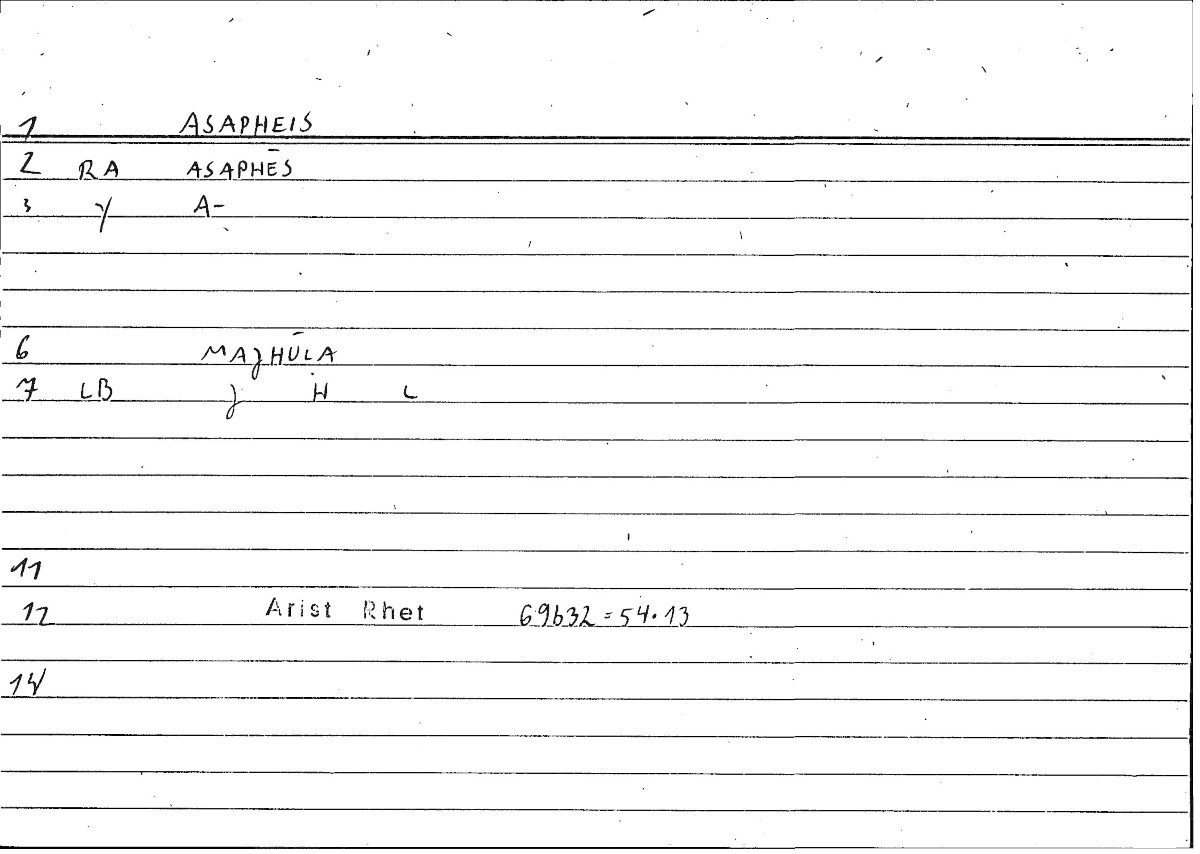 1 ASAPHEIS
2 RA ASAPHĒS
3 γ A-
6 MAJHŪLA
7 LB J H L
11
12 Arist Rhet 69b32=54.13
14